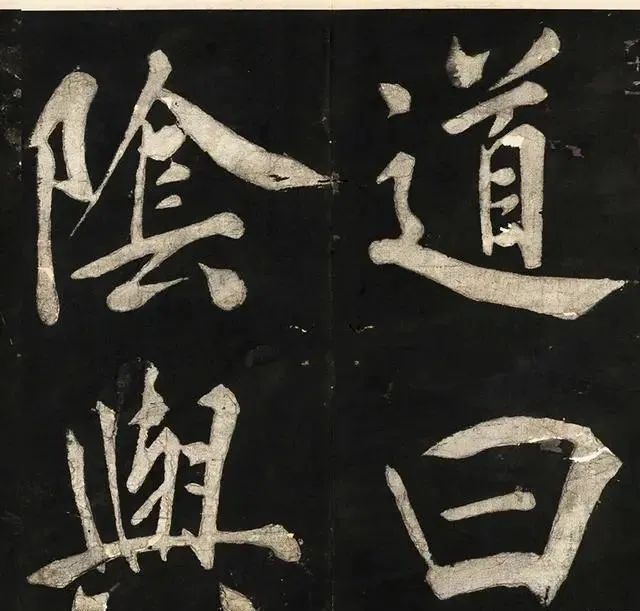 道曰
陰與